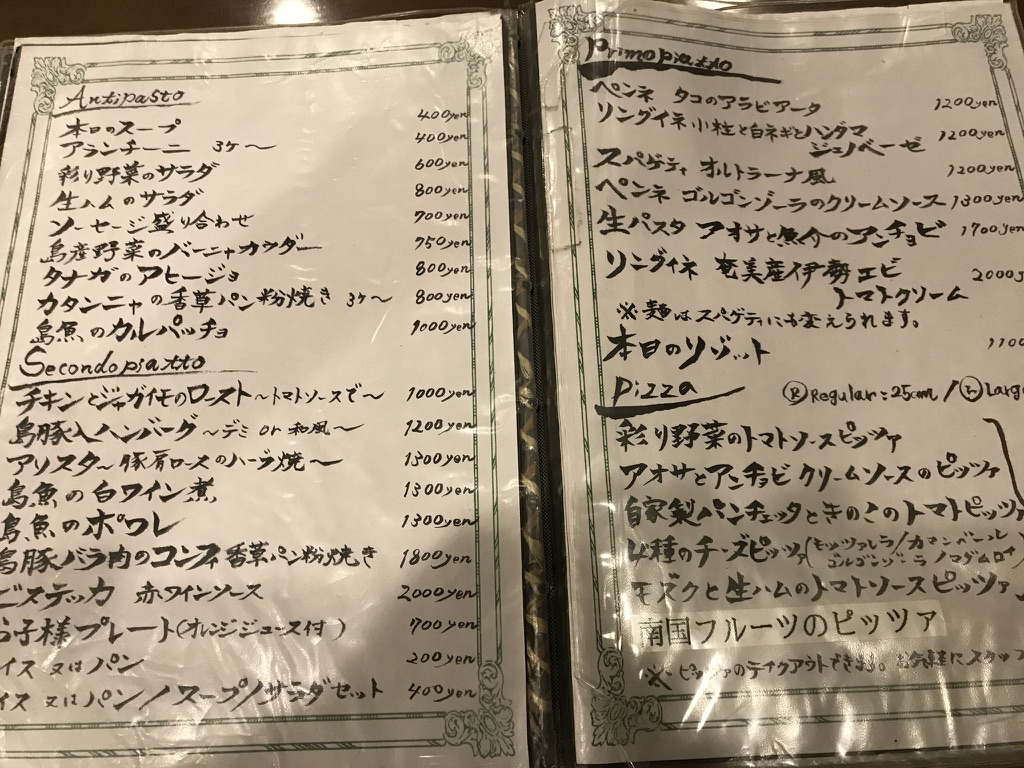 Antipasto
本日のスープ 400yen
アランチーニ 3ケ〜 400yen
彩り野菜のサラダ 600yen
生ハムのサラダ 800yen
ソーセージ盛り合わせ 700yen
島産野菜のバーニャカウダー 750yen
タナガのアヒージョ 800yen
カタンニャの香草パン粉焼き 3ケ〜 800yen
島魚のカルパッチョ 1000yen
Secondopiatto
チキンとジャガイモのロースト〜トマトソースで〜 1000yen
島豚入ハンバーグ〜デミ or 和風〜 1200yen
アリスタ〜豚肩ロースのハーブ焼〜 1300yen
島魚の白ワイン煮 1300yen
島魚のポワレ 1300yen
島豚バラ肉のコンフィ香草パン粉焼き 1800yen
ビステッカ 赤ワインソース 2000yen
お子様プレート(オレンジジュース付) 700yen
イス又はパン 200yen
イス又はパン/スープ/サラダセット 400yen
Primopiatto
ペンネ タコのアラビアータ 1200yen
リングイネ 小柱と白ネギとハンダマ
ジェノベーゼ 1200yen
スパゲティ オルトラーナ風 1200yen
ペンネ ゴルゴンゾーラのクリームソース 1300yen
生パスタ アオサと魚介のアンチョビ 1700yen
リングイネ 奄美産伊勢エビ
トマトクリーム 2000y
※麺はスパゲティにも変えられます。
本日のリゾット 1100
Pizza Ⓡ Regular:25cm / Ⓛ Larg
彩り野菜のトマトソースピッツァ
アオサとアンチョビ クリームソースのピッツァ
自家製パンチェッタときのこのトマトピッツァ
4種のチーズピッツァ(モッツァレラ/カマンベール
ゴルゴンゾーラ/マダムロイ
モズクと生ハムのトマトソースピッツァ
南国フルーツのピッツァ
※ピッツァのテイクアウトできます。お気軽にスタッフ